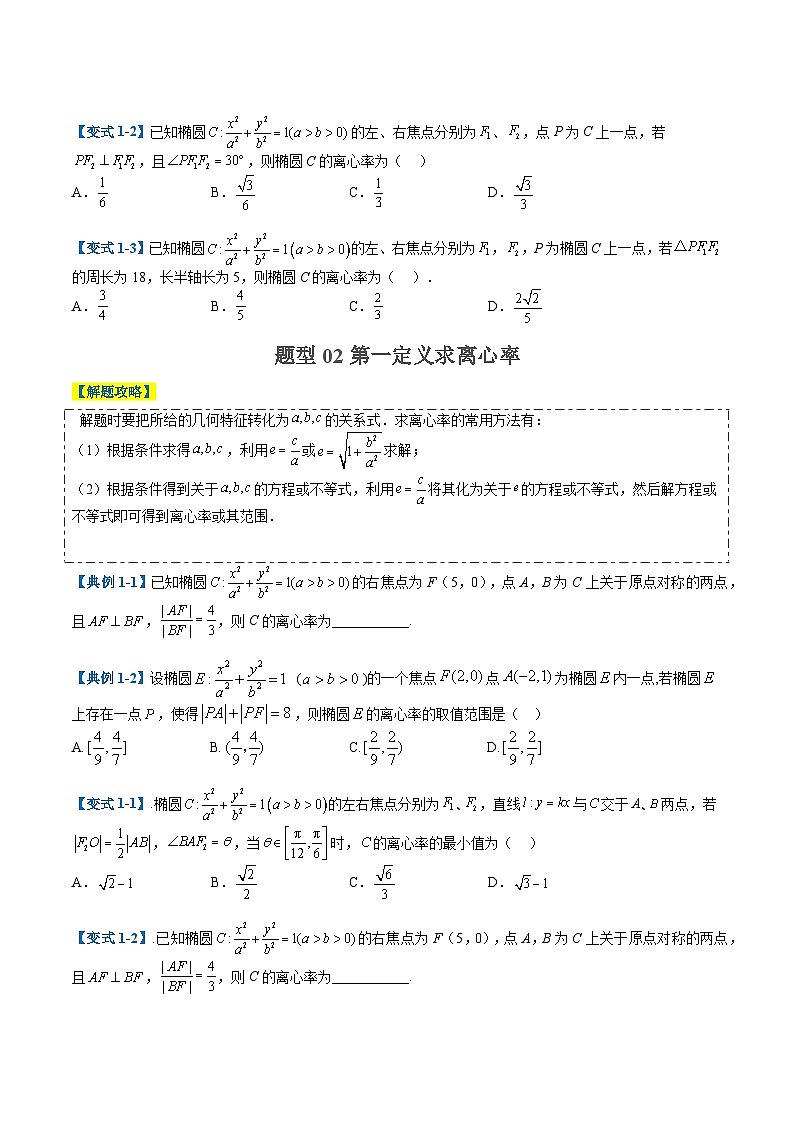 【变式1-2】已知椭圆 $C:\frac{x^2}{a^2}+\frac{y^2}{b^2}=1(a>b>0)$ 的左、右焦点分别为 $F_1$、$F_2$，点 P 为 C 上一点，若
$PF_2\perp F_1F_2$，且 $\angle PF_1F_2=30°$，则椭圆 C 的离心率为（ ）
A．$\frac{1}{6}$ B．$\frac{\sqrt{3}}{6}$ C．$\frac{1}{3}$ D．$\frac{\sqrt{3}}{3}$
【变式1-3】已知椭圆 $C:\frac{x^2}{a^2}+\frac{y^2}{b^2}=1(a>b>0)$ 的左、右焦点分别为 $F_1$，$F_2$，P 为椭圆 C 上一点，若 $\triangle PF_1F_2$
的周长为 18，长半轴长为 5，则椭圆 C 的离心率为（ ）．
A．$\frac{3}{4}$ B．$\frac{4}{5}$ C．$\frac{2}{3}$ D．$\frac{2\sqrt{2}}{5}$
题型 02 第一定义求离心率
【解题攻略】
解题时要把所给的几何特征转化为 $a,b,c$ 的关系式．求离心率的常用方法有：
（1）根据条件求得 $a,b,c$，利用 $e=\frac{c}{a}$ 或 $e=\sqrt{1+\frac{b^2}{a^2}}$ 求解；
（2）根据条件得到关于 $a,b,c$ 的方程或不等式，利用 $e=\frac{c}{a}$ 将其化为关于 $e$ 的方程或不等式，然后解方程或
不等式即可得到离心率或其范围．
【典例1-1】已知椭圆 $C:\frac{x^2}{a^2}+\frac{y^2}{b^2}=1(a>b>0)$ 的右焦点为 F（5，0），点 A，B 为 C 上关于原点对称的两点，
且 $AF\perp BF$，$\frac{|AF|}{|BF|}=\frac{4}{3}$，则 C 的离心率为___________.
【典例1-2】设椭圆 $E:\frac{x^2}{a^2}+\frac{y^2}{b^2}=1$（$a>b>0$）的一个焦点 $F(2,0)$ 点 $A(-2,1)$ 为椭圆 $E$ 内一点,若椭圆 $E$
上存在一点 $P$，使得 $|PA|+|PF|=8$，则椭圆 $E$ 的离心率的取值范围是（ ）
A. $[\frac{4}{9},\frac{4}{7}]$ B. $(\frac{4}{9},\frac{4}{7})$ C. $[\frac{2}{9},\frac{2}{7})$ D. $[\frac{2}{9},\frac{2}{7}]$
【变式1-1】.椭圆 $C:\frac{x^2}{a^2}+\frac{y^2}{b^2}=1(a>b>0)$ 的左右焦点分别为 $F_1$、$F_2$，直线 $l:y=kx$ 与 $C$ 交于 $A$、$B$ 两点，若
$|F_2O|=\frac{1}{2}|AB|$，$\angle BAF_2=\theta$，当 $\theta\in\left[\frac{\pi}{12},\frac{\pi}{6}\right]$ 时，$C$ 的离心率的最小值为（ ）
A．$\sqrt{2}-1$ B．$\frac{\sqrt{2}}{2}$ C．$\frac{\sqrt{6}}{3}$ D．$\sqrt{3}-1$
【变式1-2】.已知椭圆 $C:\frac{x^2}{a^2}+\frac{y^2}{b^2}=1(a>b>0)$ 的右焦点为 F（5，0），点 A，B 为 C 上关于原点对称的两点，
且 $AF\perp BF$，$\frac{|AF|}{|BF|}=\frac{4}{3}$，则 C 的离心率为___________.